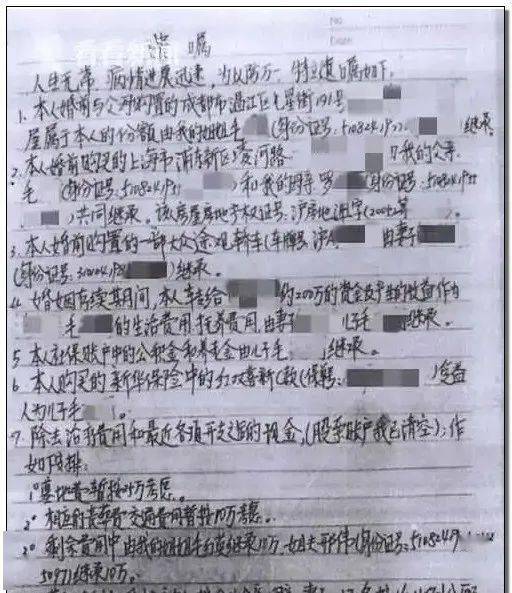 No
Date
看看新闻
遗嘱
人生无常 病情进展迅速，为以防万一 特立遗嘱如下.
1. 本人婚前与父母购置的成都市温江区 星街191号
屋属于本人的份额由我的姐姐毛 (身份证号:5108241977. 继承.
2. 本人婚前购买的上海市浦东新区 河路 我的父亲
毛 (身份证号:510824195 )和我的母亲 罗 (身份证号:51082419
)共同继承。该房屋房地产权证号:沪房地 字(2002)第 .
3. 本人婚前购置的一部大众途观轿车(车牌号 沪A 由妻子
(身份证号: )继承。
4. 婚姻存续其间,本人 给 约200万的资金及产生的收益作为
毛 的生活费用,抚养费用,由妻子 儿子毛 继承。
5 本人社保账户中的公积金和养老金由儿子毛. 继承。
6 本人购买的新华保险中的红双喜新C款(保单: )受益
人为儿子毛 。
7. 除去治疗费用和最近各项开支过后的现金,(股票账户我已清空);作
如下安排:
1° 墓地费暂按 万考虑。
2° 相应的丧葬费交通费用暂按10万考虑.
3° 剩余费用中由我的姐姐毛 继承10万.姐夫 伟(身份证号:51082419
50971继承10万。